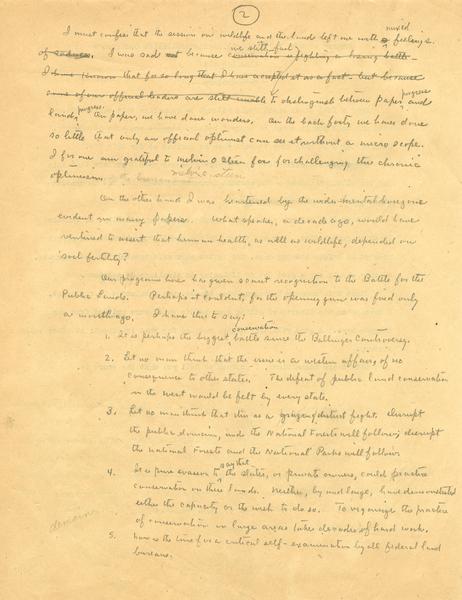 2
I must confess that the session on wildlife and the lands left me with mixed feelings
of sadness. I was sad not because we still fail conservation is fighting a losing battle
I have known that for so long that I have accepted it as a fact, but because
some of our official leaders are still unable to distinguish between paper progress and
lands progress. On paper, we have done wonders. On the back forty we have done
so little that only an official optimist can see it without a microscope.
I for one am grateful to for for challenging this chronic
optimism.
On the other hand I was heartened by the undercurrent
evident in many papers. What speaker, a decade ago, would have
ventured to assert that human health, as well as wildlife, depended on
soil fertility?
Our program has given scant recognition to the Battle for the
Public Lands. Perhaps it couldn't, for the opening gun was fired only
a month ago. I have this to say:
1. It is perhaps the biggest conservation battle since the Ballinger Controversy.
2. Let no man think that the issue is a western affair, of no
consequence to other states. The defeat of public land conservation
in the west would be felt by every state.
3. Let no man think that this is a grazing district fight. Disrupt
the public domain, and the National Forests will follow; disrupt
the National Forests and the National Parks will follow.
4. It is pure evasion to say that the states, or private owners, could practice
conservation on these lands. Neither, by and large, have demonstrated
either the capacity or the wish to do so. To organize the practice
of conservation on large areas takes decades of hard work.
5. Now is the time for a critical self-examination by all federal land
bureaus.